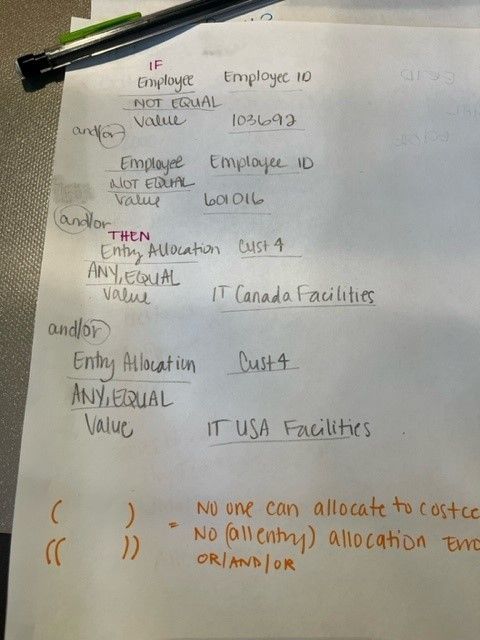 IF
Employee Employee ID
NOT EQUAL
Value 103692
and/or
Employee Employee ID
NOT EQUAL
Value 601016
and/or
THEN
Entry Allocation Cust 4
ANY, EQUAL
Value IT Canada Facilities
and/or
Entry Allocation Cust 4
ANY, EQUAL
Value IT USA Facilities
( ) = No one can allocate to costce
(( )) No (all entry) allocation Erro
OR/AND/OR